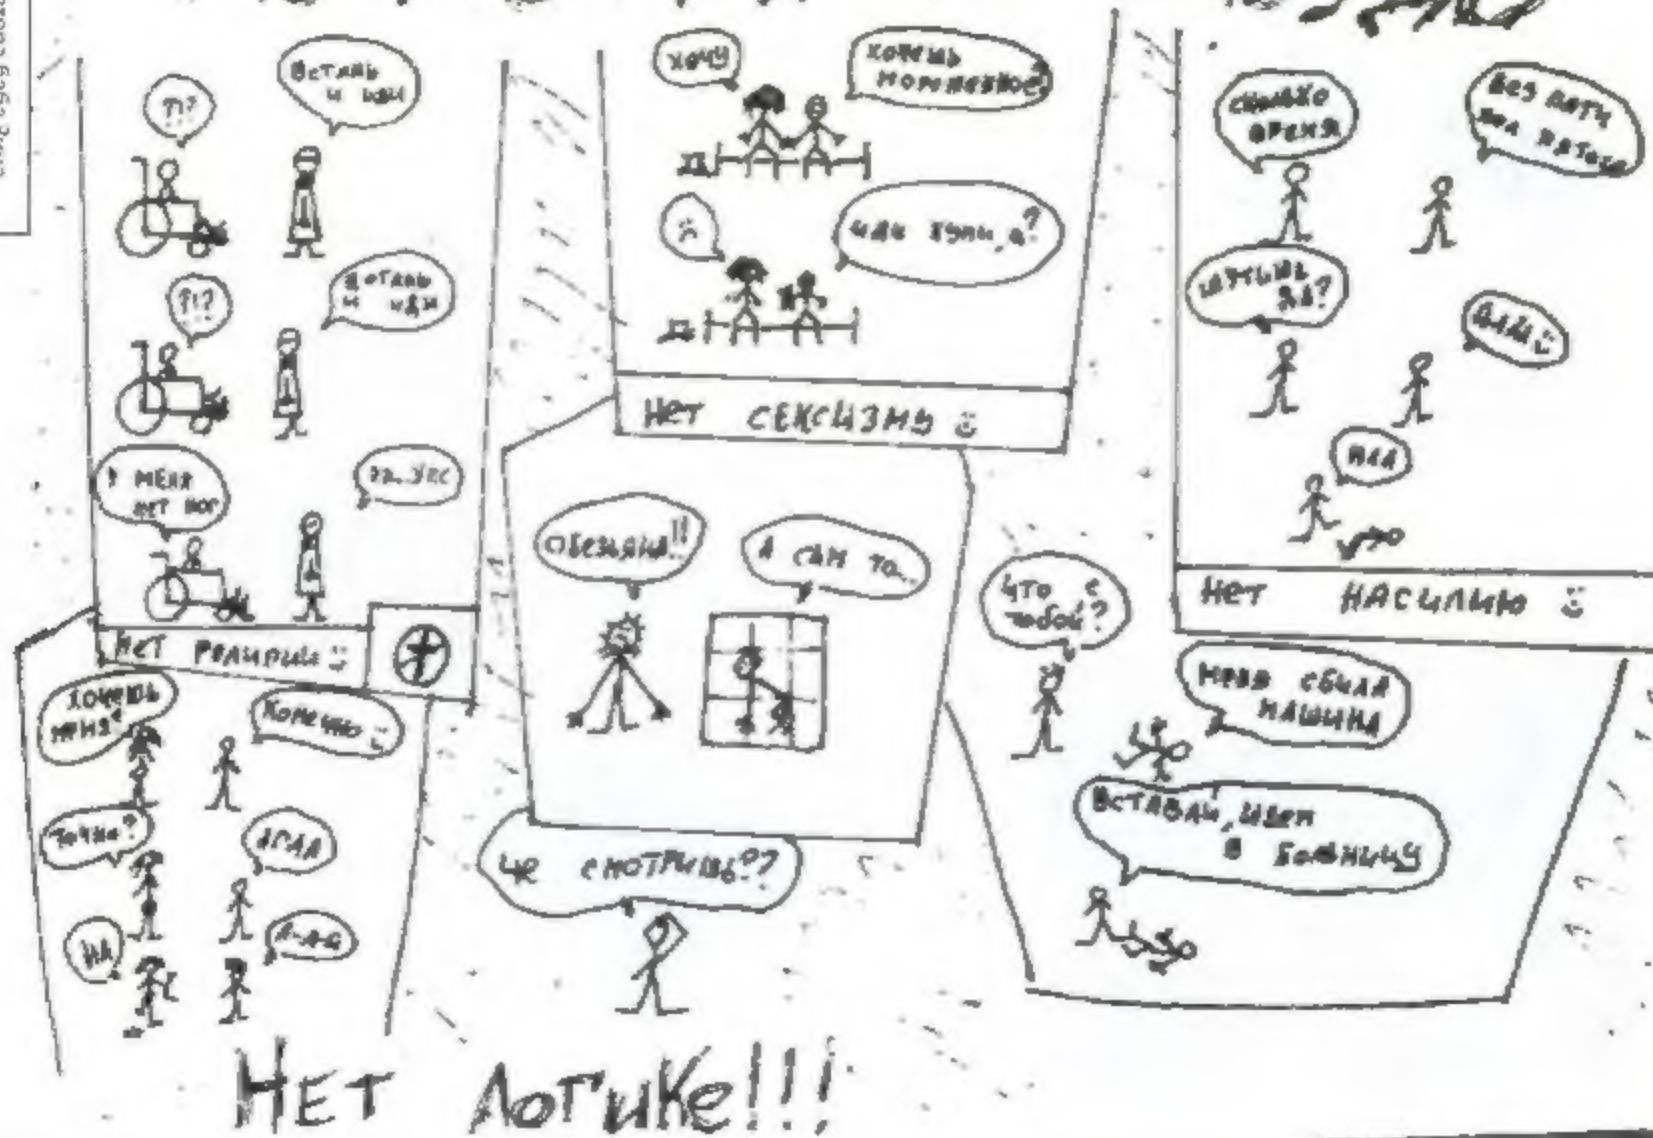 ?!?
Встань
и иди
?!?
Встань
и иди
у меня
нет ног
Нет религии
Хочу
Хочешь
мороженное?
иди купи, а?
Нет сексизмъ
сколько
время
без пяти
пол пятого
шутишь
да?
Нет насилию
Обезьяна!!
А сам то..
Че смотришь??
Что с
тобой?
меня сбила
машина
Вставай, идем
в больницу
Хочешь
меня?
Конечно
Точно?
ага
на
А-А-А
Нет логике!!!